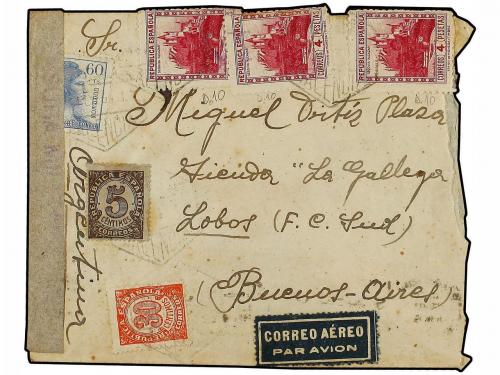 REPUBLICA ESPAÑOLA
CORREOS 4 PESETAS
REPUBLICA ESPAÑOLA
CORREOS 4 PESETAS
REPUBLICA ESPAÑOLA
CORREOS 4 PESETAS
D.10
D.10
D.10
Sr.
60
Miguel Ortiz Plaza
Tienda "La Gallega
Lobos (F.C. Sud)
(Buenos-Aires)
Argentina
REPUBLICA ESPAÑOLA
5
CENTIMOS
CORREOS
REPUBLICA ESPAÑOLA
30
CENTIMOS
CORREOS
CORREO AÉREO
PAR AVION